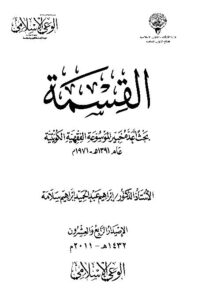 الوعي الإسلامي
القِسْمَة
بحث أعده خبير للموسوعة الفقهية الكويتية
عام ١٣٩١هـ - ١٩٧١م
الأستاذ الدكتور/ إبراهيم عبد الحميد إبراهيم سلامة
الإصدار الرابع والعشرون
١٤٣٢هـ - ٢٠١١م
الوعي الإسلامي